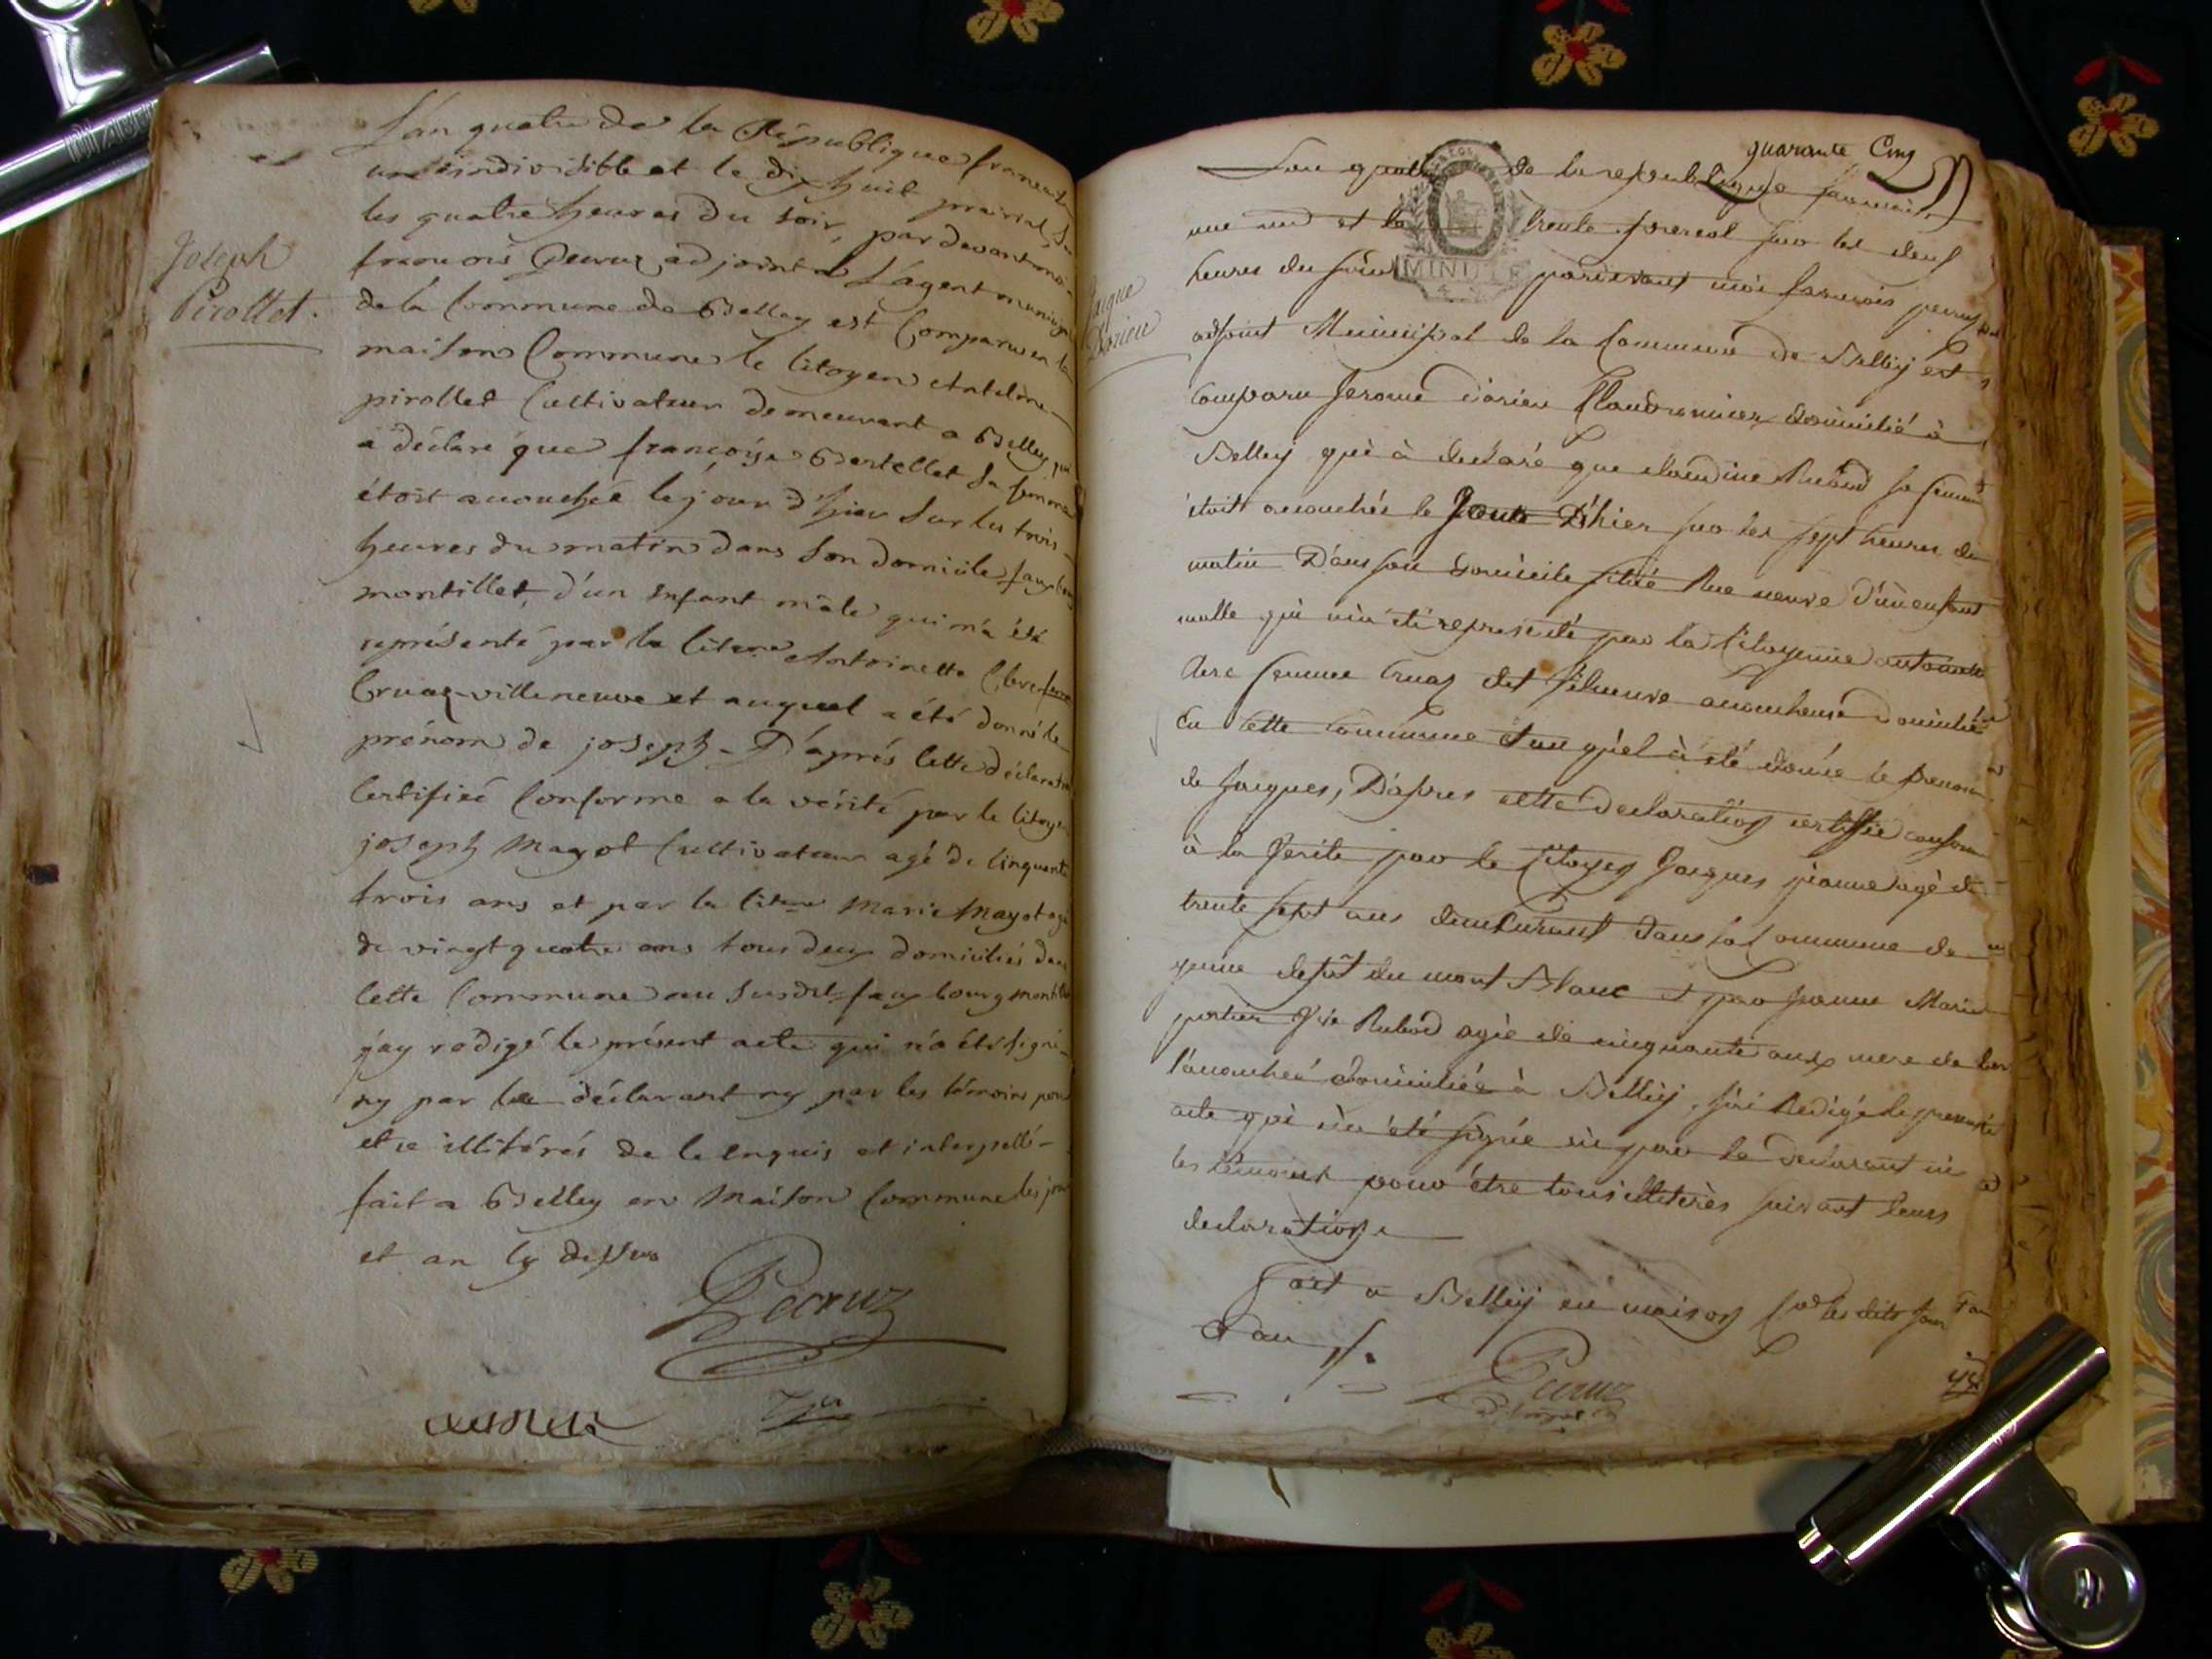 Joseph
Pirollet.
L'an quatre de la République francai
une indivisible et le dix huit prairial Su
les quatre heures du soir, par devant moi
francois Pecruz adjoint a L'agent municip
de la Commune de Belley est Comparu en la
maison Commune le Citoyen Antelme
pirollet Cultivateur demeurant a Belley qui
a déclaré que françoise Bertellet Sa femme
étoit accouchée le jour d'hier Sur les trois
heures du matin dans Son domicile faux bourg
montillet, d'un Enfant mâle qui m'a été
représenté par la Citene Antoinette Clerc feme
Cruaz-villeneuve et auquel a été donné le
prénom de joseph - D'après Cette déclaration
Certifiée Conforme a la vérité par le Citoyen
joseph Mayot Cultivateur agé de Cinquante
trois ans et par la Citene Marie Mayot agé
de vingt quatre ans tous deux domiciliés dans
Cette Commune au Susdit faux bourg montillet
j'ay rédigé le présent acte qui n'a été signé
ny par le déclarant ny par les témoins pour
etre illitérés de le enquis et interpellé
fait a Belley en Maison Commune les jour
et an Cy dessus
Pecruz
quarante Cinq
Jacque
Dorieu
L'an quatre de la republique francaise
une ind et le trente floreal sur les deux
heures du soir MINUTE pardevant moi francois pecruz
adjoint Municipal de la Commune de Belley est
comparu Jerome dorieu domicilié à
Belley qui à declaré que claudine Rubod sa femme
étoit accouchée le Jour D'hier sur les sept heures du
matin Dans son domicile situé Rue neuve d'un enfant
malle qui m'a été representé par la Citoyenne antoinette
clerc femme Cruaz dit accoucheuse domicilié
en Cette commune et au quel à été donné le prenom
de Jacques, D'apres cette declaration certiffié conforme
à la verité par le Citoyen Jacques agé de
trente sept ans demeurant dans la Commune de
yenne dept du mont Blanc et par Jeanne Marie
portier Rubod agée de cinquante ans mere de la
l'accouchée domiciliée à Belley, j'ai Redigé le present
acte qui n'a été signée ni par le declarant ni
les témoins pour être tous illiterès suivant leurs
declarations
fait a Belley en maison les dits jour
et an
Pecruz